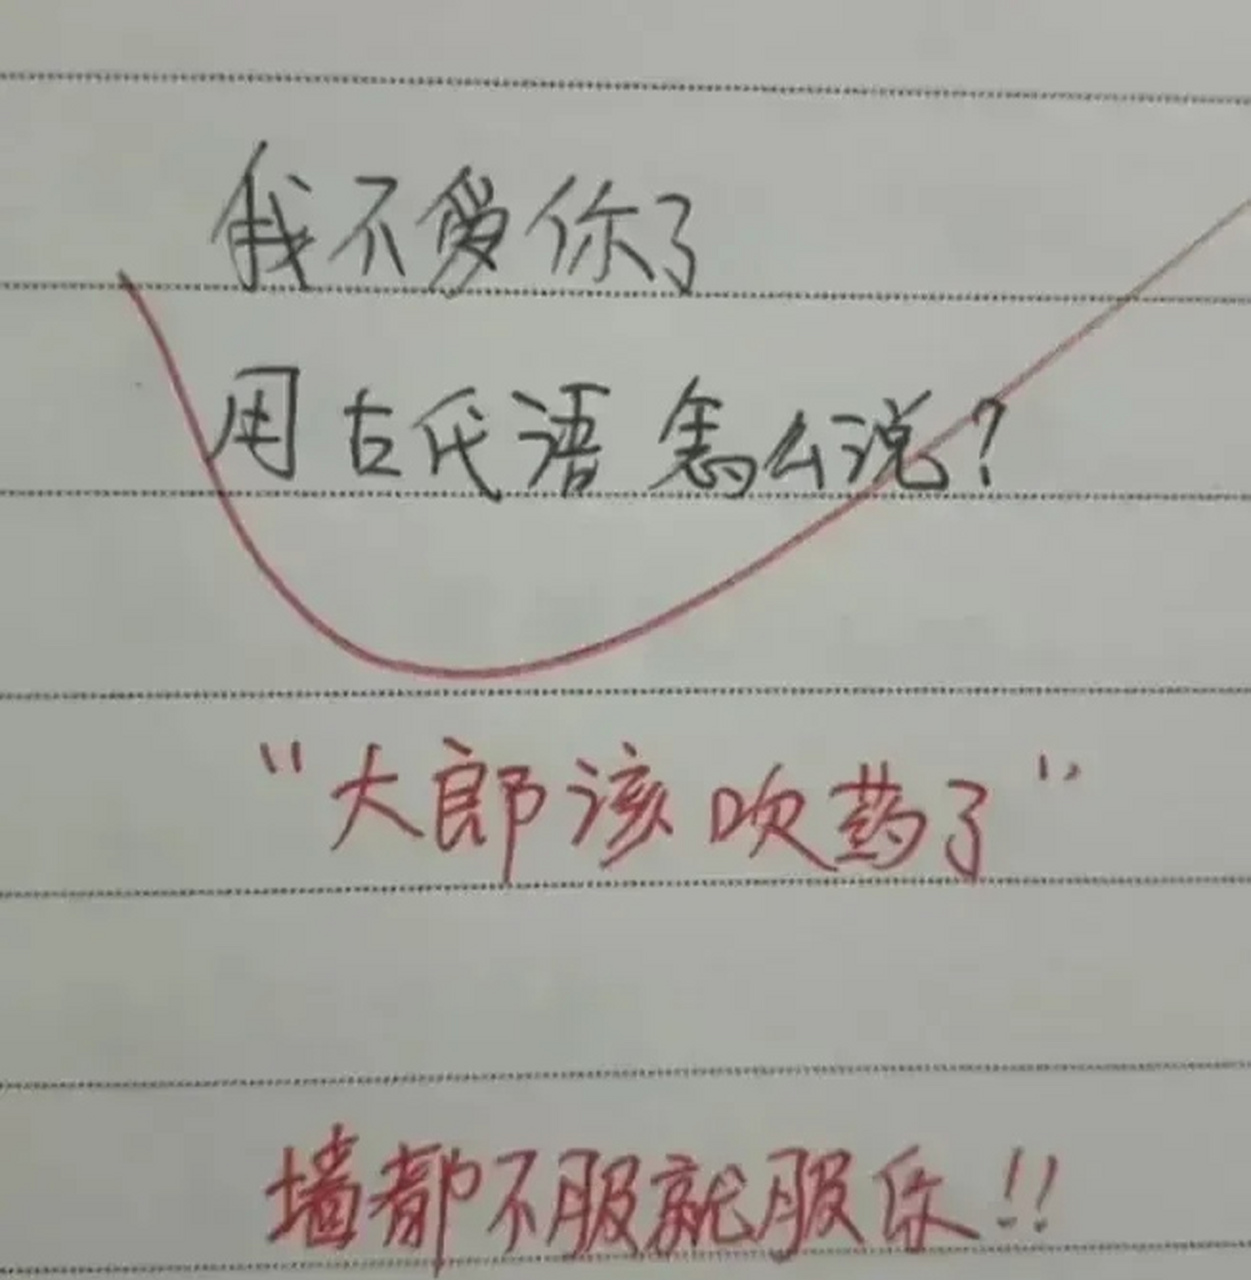 我不爱你了
用古氏语怎么说?
“大郎该吹药了”
墙都不服就服你!!